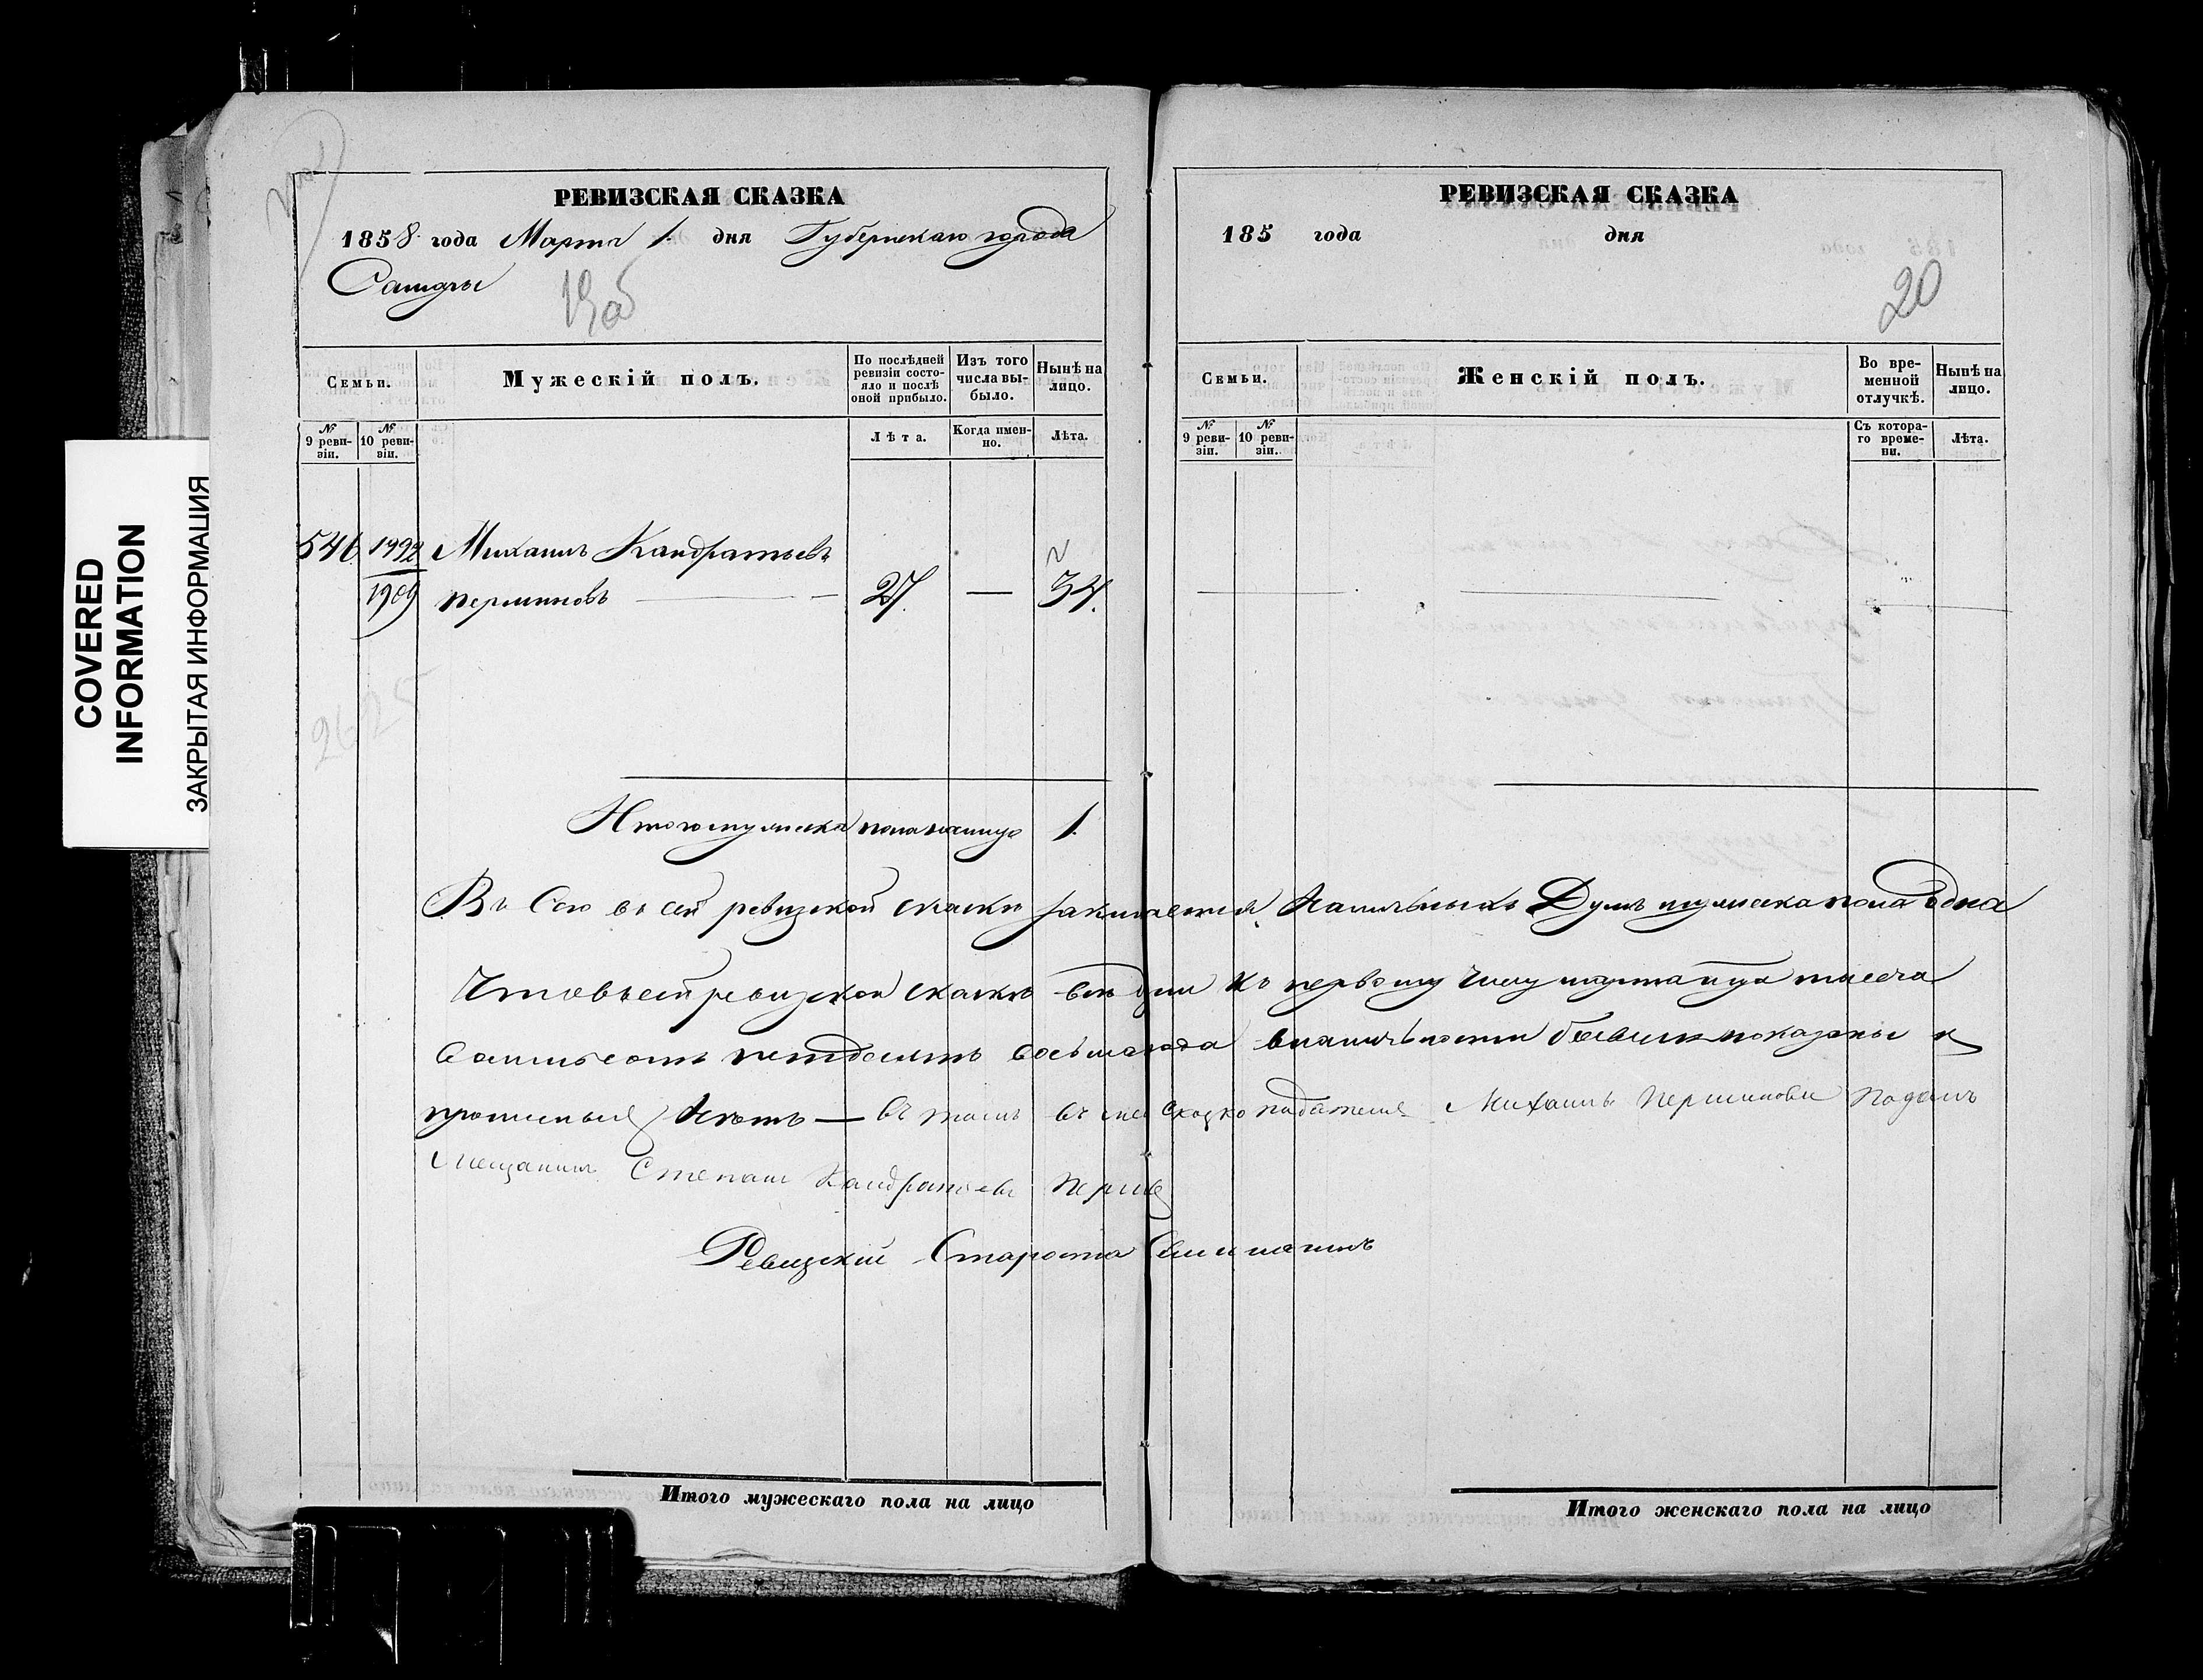 COVERED
INFORMATION
ЗАКРЫТАЯ ИНФОРМАЦИЯ
РЕВИЗСКАЯ СКАЗКА
1858 года Марта 1. дня Губернскаго города
Самары
19об
Семьи.
Мужескій полъ.
По послѣдней ревизіи состояло и послѣ оной прибыло.
Изъ того числа выбыло.
Нынѣ на лицо.
№ 9 ревизіи.
№ 10 ревизіи.
Лѣта.
Когда именно.
Лѣта.
546. 1992 Михаилъ Кандратьевъ
1909 Перминовъ — 27. — 34.
2625
Итого мужеска пола налицо 1.
РЕВИЗСКАЯ СКАЗКА
185 года дня
20
Семьи.
Женскій полъ.
Во временной отлучкѣ.
Нынѣ на лицо.
№ 9 ревизіи.
№ 10 ревизіи.
Съ котораго времени.
Лѣта.
въ сей ревизской сказки наличныхъ Душъ мужеска пола одна
Что въ сей ревизской сказкѣ всѣ Къ первому числу марта тысеча
восьмаго года в наличности показаны и
Нѣтъ — въ томъ въ сказко Михаилъ Перминовъ
Мещанинъ Степанъ Кандратьевъ
Ревизскій Староста
Итого мужескаго пола на лицо
Итого женскаго пола на лицо